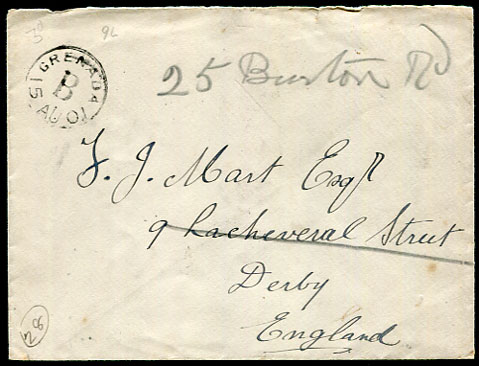 3d
96
GRENADA
B
15 AU 01
25 Burton Rd
F. J. Mart Esqr
9 Lacheveral Street
Derby
England